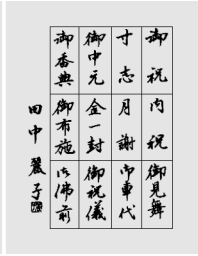 御祝
内祝
御見舞
寸志
月謝
御車代
御中元
金一封
御祝儀
御香典
御布施
御佛前
田中麗子